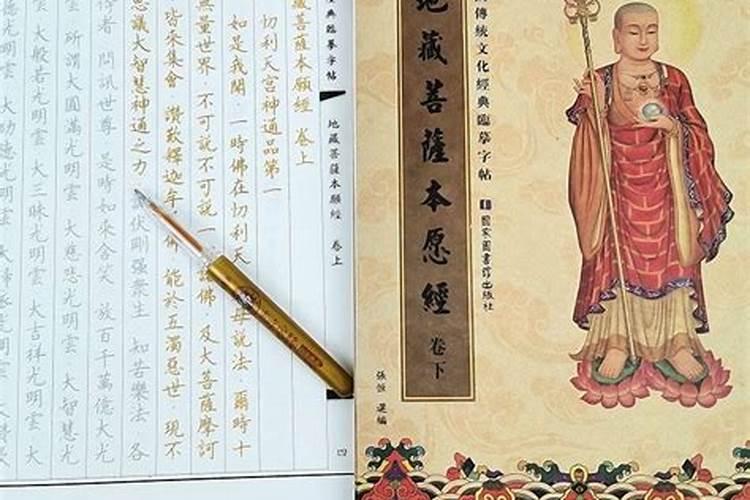 傳統文化經典臨摹字帖
國家圖書館出版社
地藏菩薩本愿經 卷下
張恒 選編
典臨摹字帖
地藏菩薩本願經 卷上
四
藏菩薩本願經 卷上
忉利天宮神通品第一
如是我聞 一時佛在忉利天 母說法 爾時十
無量世界 不可說不可說 一 諸佛 及大菩薩摩訶
皆來集會 讚歎釋迦牟 佛 能於五濁惡世 現不
思議大智慧神通之力 伏剛強眾生 知苦樂法 各
侍者 問訊世尊 是時如來含笑 放百千萬億大光
所謂大圓滿光明雲 大慈悲光明雲 大智慧光
雲 大般若光明雲 大三昧光明雲 大吉祥光明雲 大
德光明雲 大功德光明雲 大